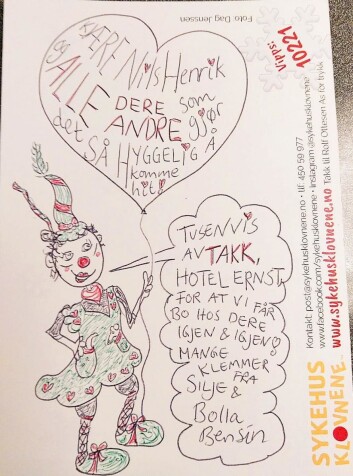 KJÆRE Nils Henrik
og ALLE DERE som
ANDRE gjør
det SÅ HYGGELIG Å
komme
hit!
TUSEN
AV TAKK,
HOTEL ERNST,
FOR AT VI FÅR
BO HOS DERE
IGJEN & IGJEN &
MANGE
KLEMMER
FRA
SILJE &
Bolla
Bensin
Foto: Dag Jenssen
Vipps:
10221
SYKEHUS
KLOVNENE
Kontakt: post@sykehusklovnene.no • tlf: 450 59 977
www.facebook.com/sykehusklovnene • Instagram @sykehusklovnene
www.sykehusklovnene.no Takk til Rolf Ottesen As for trykk